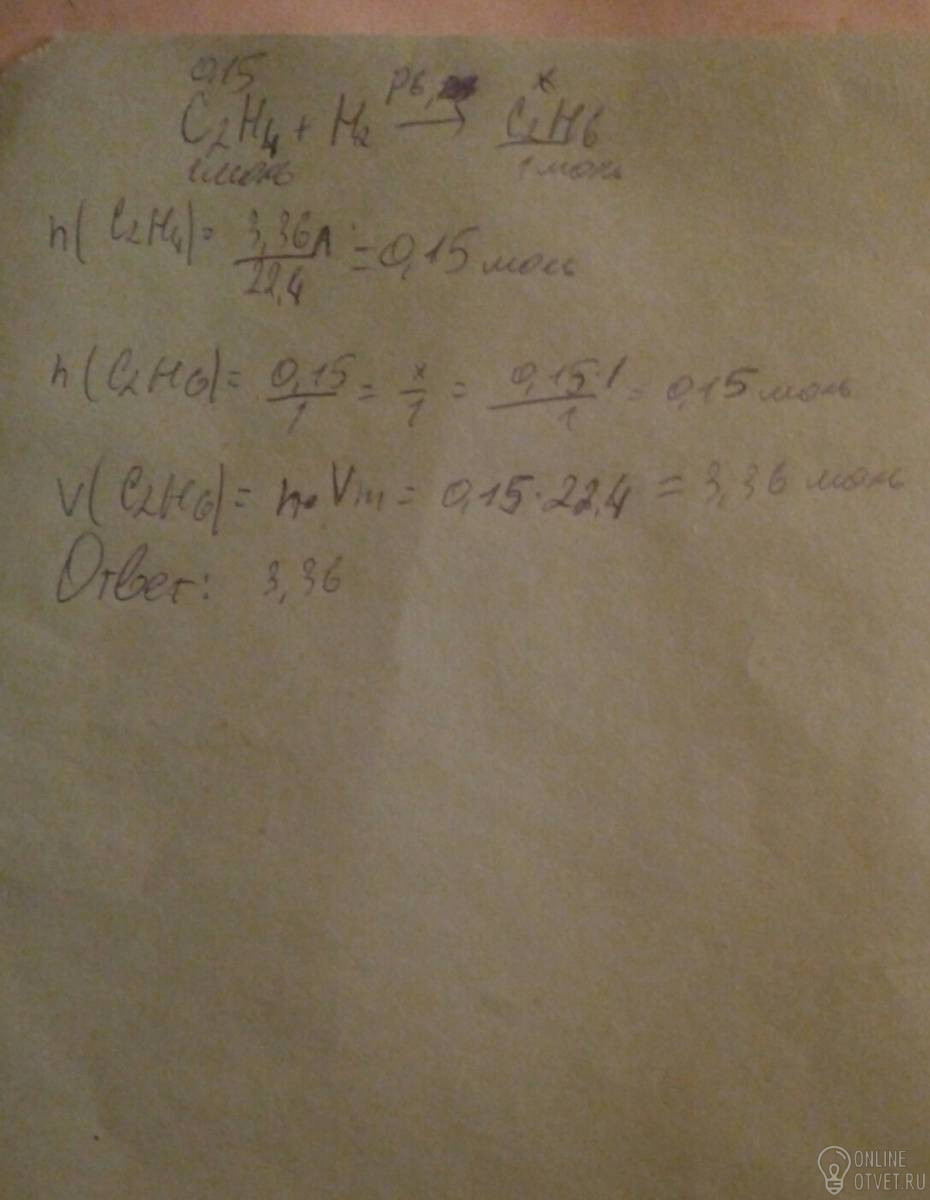 0,15 x
C2H4 + H2 → C2H6
1 моль 1 моль
n(C2H4) = 3,36л / 22,4 = 0,15 моль
n(C2H6) = 0,15 / 1 = x / 1 = 0,15·1 / 1 = 0,15 моль
V(C2H6) = n·Vm = 0,15·22,4 = 3,36 моль
Ответ: 3,36
ONLINE
OTVET.RU